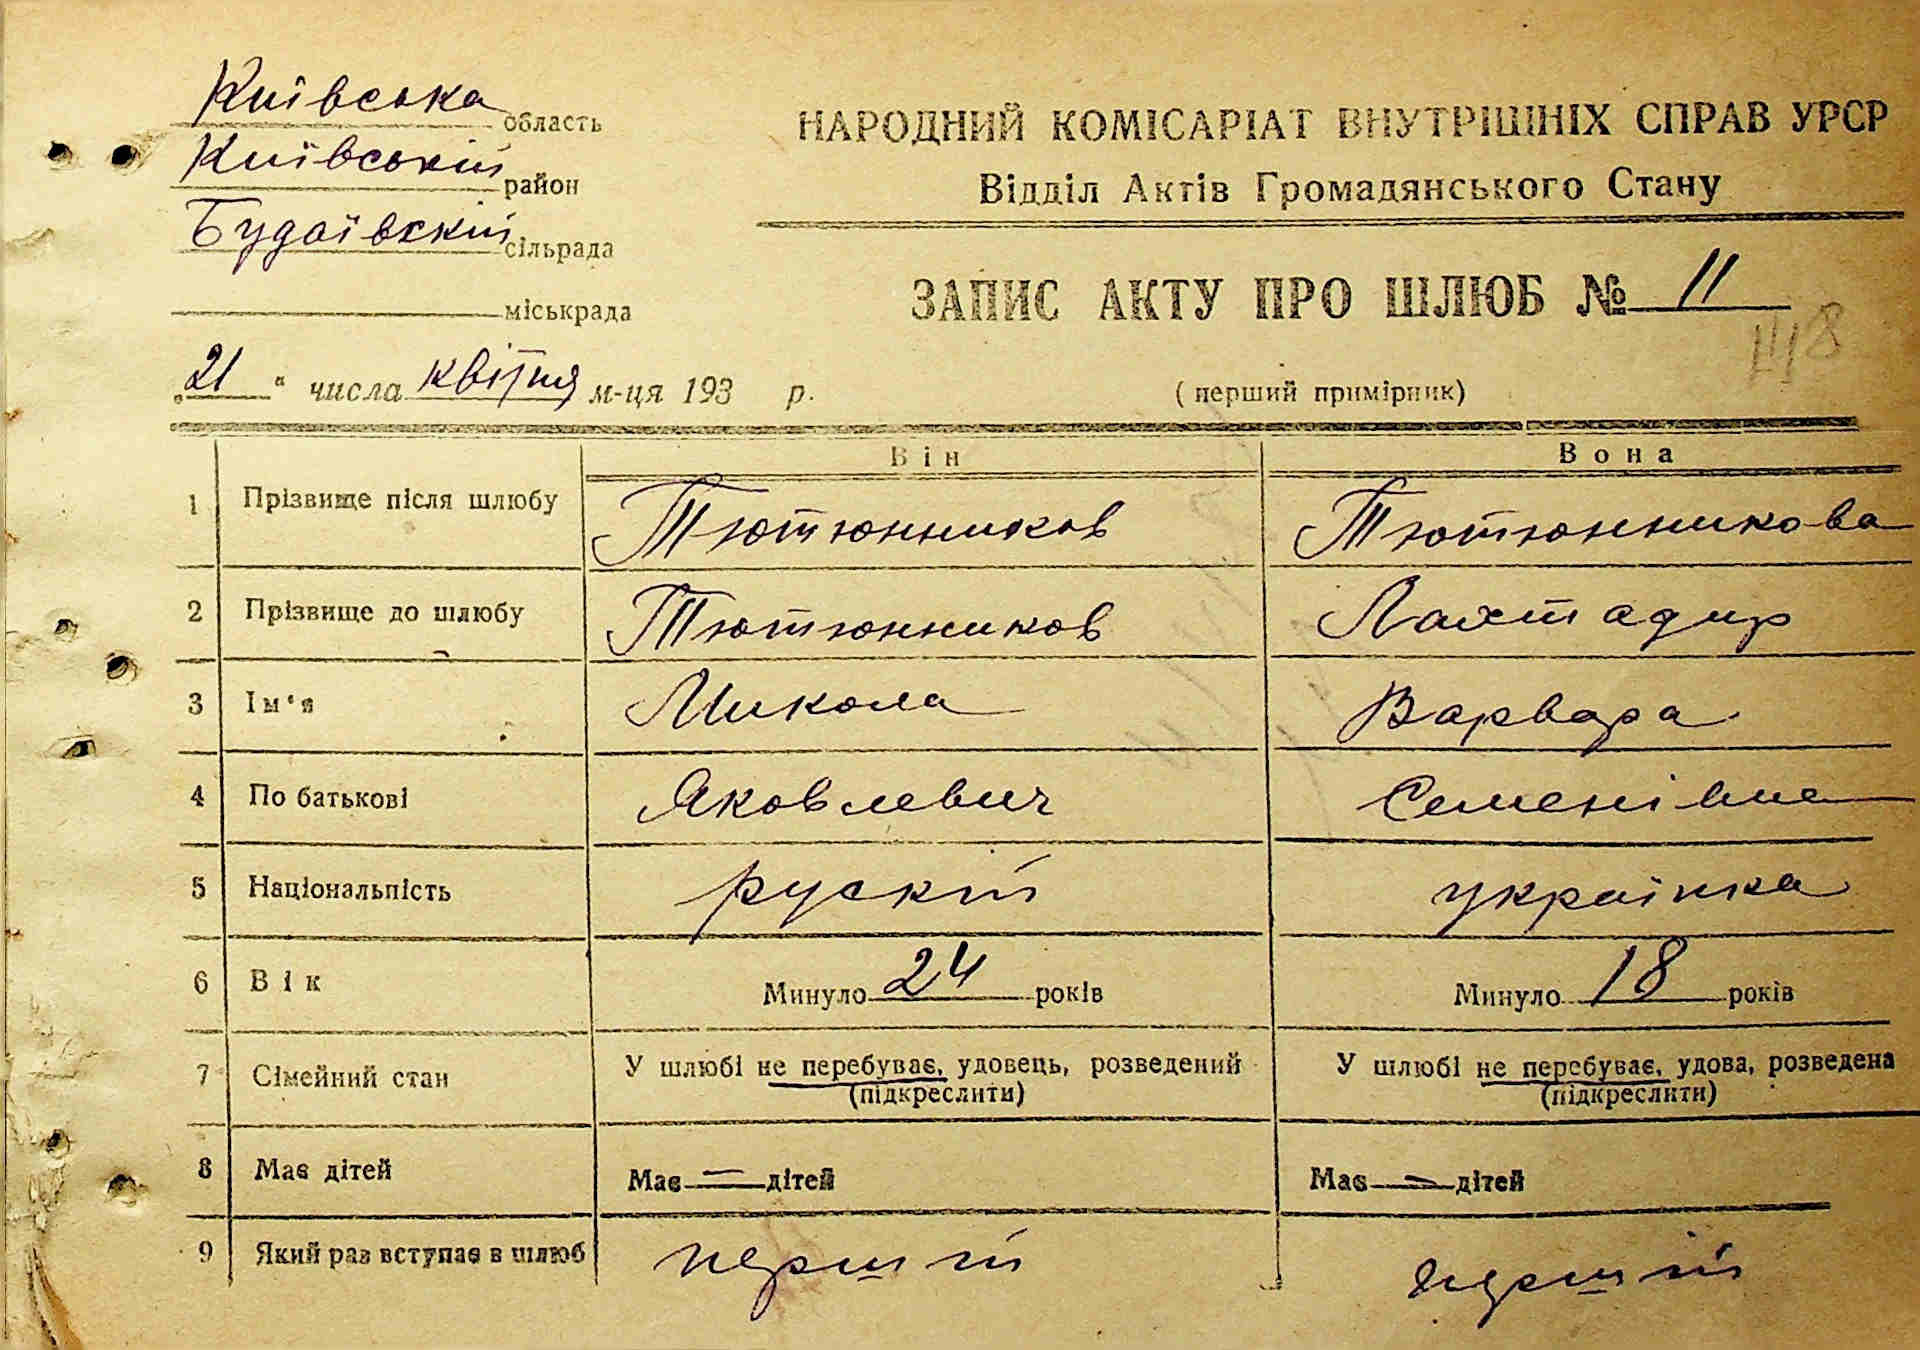 Київська область
Київській район
Будаївскій сільрада
міськрада
НАРОДНИЙ КОМІСАРІАТ ВНУТРІШНІХ СПРАВ УРСР
Відділ Актів Громадянського Стану
ЗАПИС АКТУ ПРО ШЛЮБ № 11
„21“ числа квітня м-ця 193 р.
(перший примірник)
Він Вона
1 Прізвище після шлюбу Тютюнников Тютюнникова
2 Прізвище до шлюбу Тютюнников Лахтадир
3 Ім'я Микола Варвара
4 По батькові Яковлевич Семенівна
5 Національність рускій українка
6 Вік Минуло 24 років Минуло 18 років
7 Сімейний стан У шлюбі не перебуває, удовець, розведений У шлюбі не перебуває, удова, розведена
(підкреслити) (підкреслити)
8 Має дітей Має — дітей Має — дітей
9 Який раз вступає в шлюб першій першій